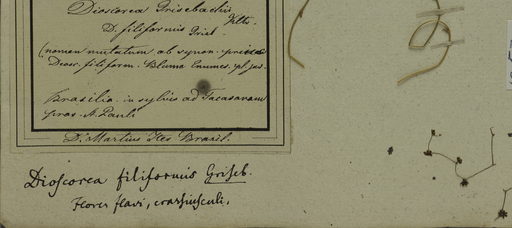 Dioscorea Grisebachii Kth.
D. filiformis Griseb.
(nomen mutatum ob synon. prius
Diosc. filiform. Blume Enumer. pl. jav.
Brasilia in sylvis ad
prov. S. Pauli
D. Martius Iter Brasil.
Dioscorea filiformis Griseb.
Flores flavi, crassiusculi,